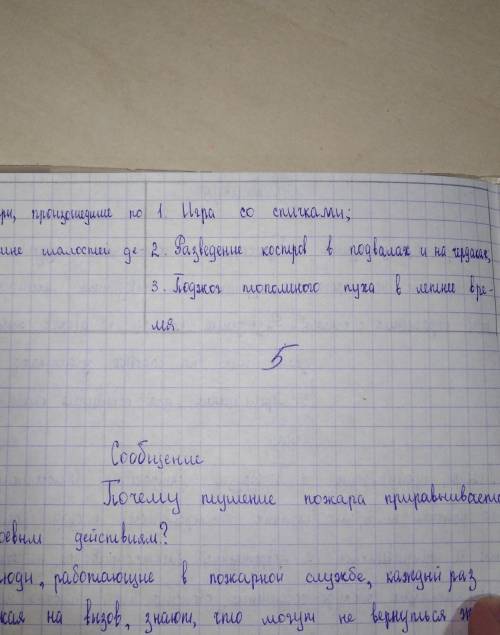 ры, произошедшие по 1. Игра со спичками;
ине шалостей де 2. Разведение костров в подвалах и на чердаках,
3. Поджог тополиного пуха в летнее вре-
мя.
5
Сообщение
Почему тушение пожара приравнивается
оевым действиям?
люди, работающие в пожарной службе, каждый раз
жая на вызов, знают, что могут не вернуться ж